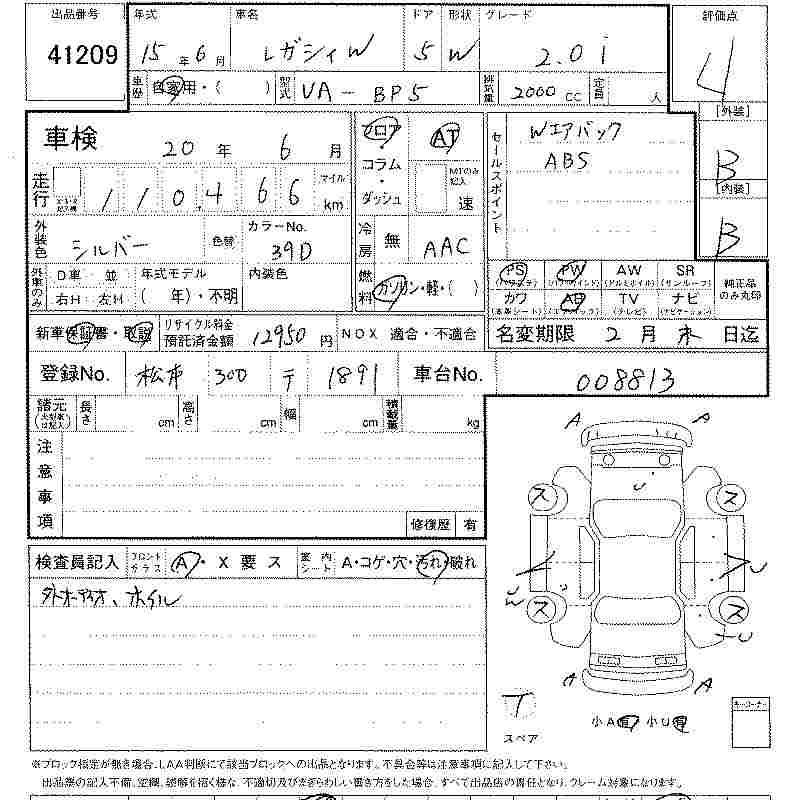 出品番号 年式 車名 ドア 形状 グレード 評価点
41209 15年6月 レガシィW 5 W 2.0i 4
車歴 自家用・( ) 型式 UA－BP5 排気量 2000cc 定員 人
[外装]
B
[内装]
B
車検 20年6月
フロア・コラム・ダッシュ
AT
MTのみ記入
速
セールスポイント
Wエアバック
ABS
走行 110,466 マイル km
外装色 シルバー 色替 カラーNo. 39D
冷房 無 AAC
外車のみ D車 並 年式モデル 内装色
右H・左H ( 年)・不明
燃料 ガソリン・軽・( )
PS PW AW SR
(パワステ) (パワーウインド) (アルミホイル) (サンルーフ)
カワ AB TV ナビ
(本革シート) (エアバック) (テレビ) (ナビゲーション)
純正品のみ丸印
新車保証書・取説 リサイクル料金預託済金額 12950円 NOX 適合・不適合
名変期限 2月末日迄
登録No. 松本 300 テ 1891 車台No. 008813
諸元 長さ cm 高さ cm 幅 cm 積載量 kg
注意事項
修復歴 有
検査員記入 フロントガラス A・X 要 ス 室内シート A・コゲ・穴・汚れ・破れ
外オーディオ、ホイル
A A
ス ス
U
ス ス
U
A A
T
スペア
小A有 小U有
※ブロック指定が無き場合、LAA判断にて該当ブロックへの出品となります。不具合等は注意事項に記入して下さい。
出品票の記入不備、空欄、誤解を招く様な、不適切及びまぎらわしい書き方をした場合、すべて出品店の責任となり、クレーム対象になります。